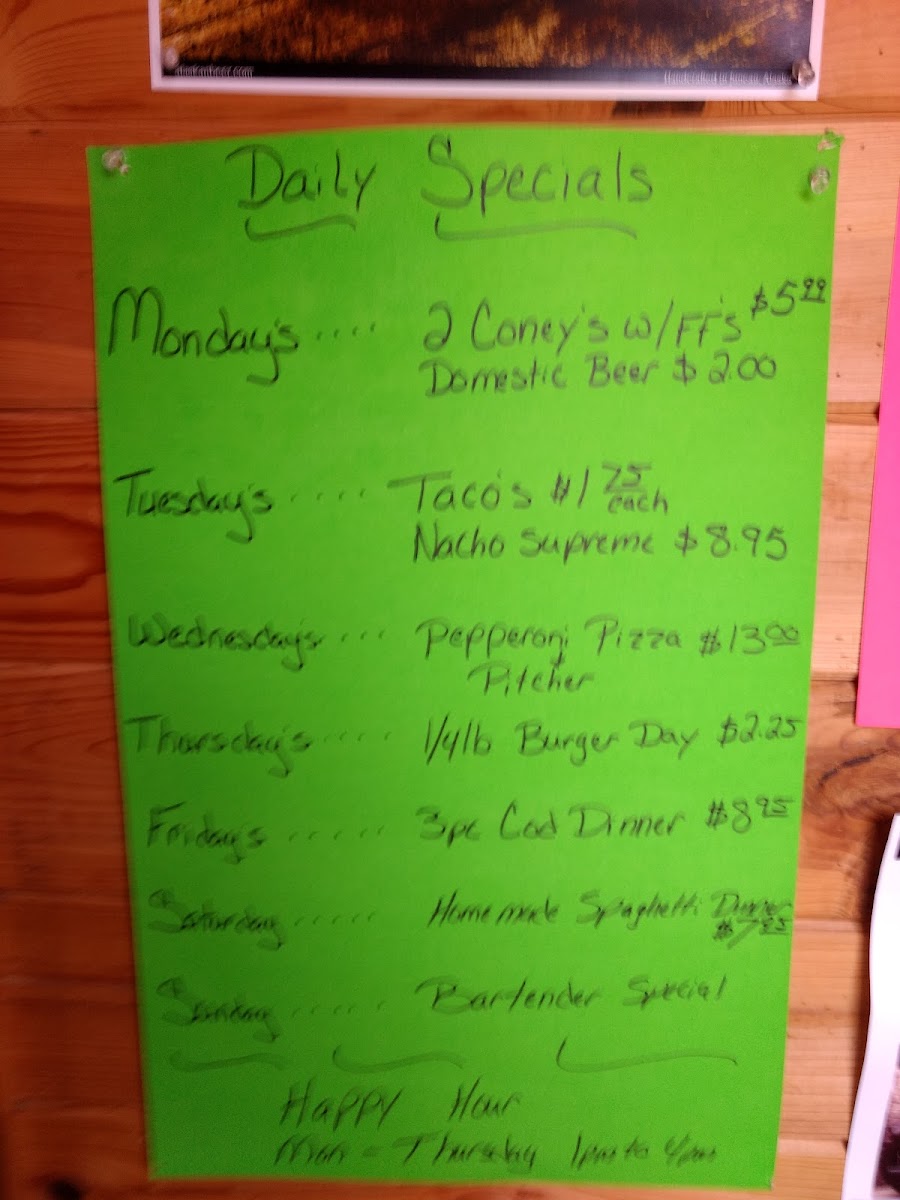 Handcrafted in Kenai, Alaska
Daily Specials
Monday's .... 2 Coney's w/FF's $5.99
Domestic Beer $2.00
Tuesday's .... Taco's $1.75 each
Nacho Supreme $8.95
Wednesday's ... Pepperoni Pizza $13.00
Pitcher
Thursday's ..... 1/4lb Burger Day $2.25
Friday's ...... 3pc Cod Dinner $8.95
Saturday ...... Homemade Spaghetti Dinner
$7.95
Sunday ...... Bartender Special
Happy Hour
Mon - Thursday 1pm to 4pm